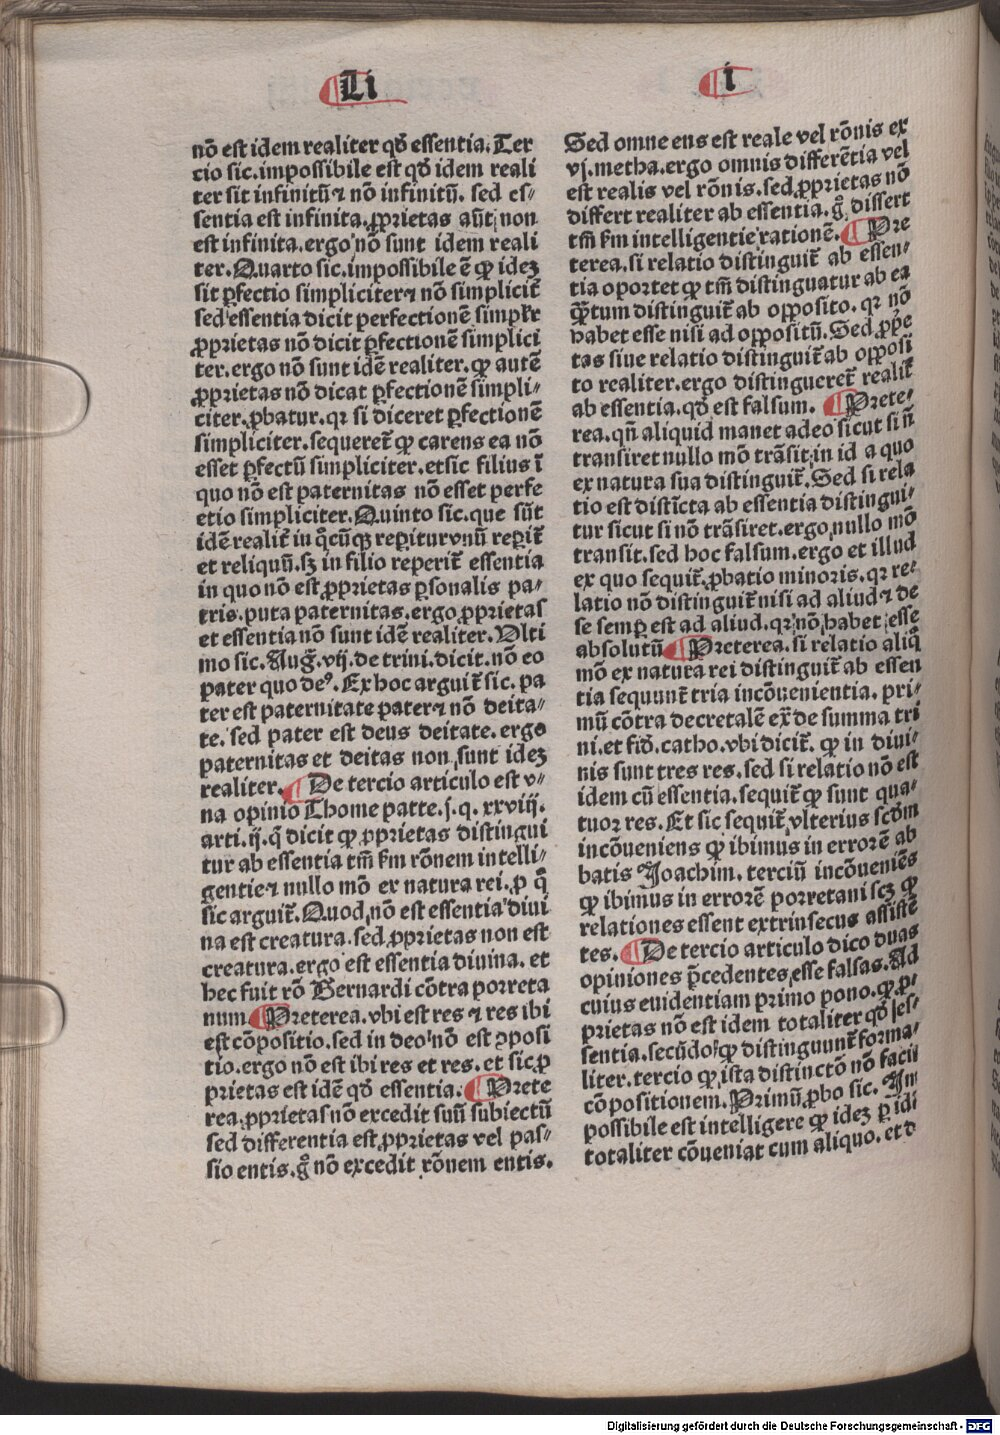 Li
i
nō est idem realiter qd̄ essentia. Ter
cio sic. impossibile est qd̄ idem reali
ter sit infinitū ⁊ nō infinitū. sed es⸗
sentia est infinita. ꝓprietas aūt non
est infinita. ergo nō sunt idem reali
ter. Quarto sic. impossibile ē ꝙ ideꝫ
sit ꝑfectio simpliciter ⁊ nō simplicit̄
sed essentia dicit perfectionē simplr̄
ꝓprietas nō dicit ꝑfectionē simplici
ter. ergo nō sunt idē realiter. ꝙ autē
ꝓprietas nō dicat ꝑfectionē simpli⸗
citer. ꝓbatur. qꝛ si diceret ꝑfectionē
simpliciter. sequeret̄ ꝙ carens ea nō
esset ꝑfectū simpliciter. et sic filius ī
quo nō est paternitas nō esset perfe
ctio simpliciter. Quinto sic. que sūt
idē realit̄ in q̄cūqꝫ reꝑitur vnū reꝑit̄
et reliquū. sꝫ in filio reperit̄ essentia
in quo nō est ꝓprietas ꝑsonalis pa⸗
tris. puta paternitas. ergo ꝓprietas
et essentia nō sunt idē realiter. Vlti
mo sic. Auḡ. vij. de trini. dicit. nō eo
pater quo deꝰ. Ex hoc arguit̄ sic. pa
ter est paternitate pater ⁊ nō deita⸗
te. sed pater est deus deitate. ergo
paternitas et deitas non sunt ideꝫ
realiter. De tercio articulo est v⸗
na opinio Thome parte. j. q. xxviij.
arti. ij. q̄ dicit ꝙ ꝓprietas distingui
tur ab essentia tm̄ ẜm rōnem intelli⸗
gentie ⁊ nullo mō ex natura rei. ꝓ q̄
sic arguit̄. Quod nō est essentia diui
na est creatura. sed ꝓprietas non est
creatura. ergo est essentia diuina. et
hec fuit rō Bernardi cōtra porreta
num. Preterea. vbi est res ⁊ res ibi
est cōpositio. sed in deo nō est ↄposi
tio. ergo nō est ibi res et res. et sic ꝓ
prietas est idē qd̄ essentia. Prete
rea. ꝓprietas nō excedit suū subiectū
sed differentia est ꝓprietas vel pas⸗
sio entis. gͦ nō excedit rōnem entis.
Sed omne ens est reale vel rōnis ex
vj. metha. ergo omnis differētia vel
est realis vel rōnis. sed ꝓprietas nō
differt realiter ab essentia. gͦ differt
tm̄ ẜm intelligentie rationē. Pre
terea. si relatio distinguit̄ ab essen⸗
tia oportet ꝙ tm̄ distinguatur ab ea
q̄ꝫtum distinguit̄ ab opposito. qꝛ nō
habet esse nisi ad oppositū. Sed ꝓpͥe
tas siue relatio distinguit̄ ab opposi
to realiter. ergo distingueret̄ realit̄
ab essentia. qd̄ est falsum. Prete⸗
rea. qn̄ aliquid manet adeo sicut si n̄
transiret nullo mō trāsit in id a quo
ex natura sua distinguit̄. Sed si rela
tio est distīcta ab essentia distingui⸗
tur sicut si nō trāsiret. ergo nullo mō
transit. sed hoc falsum. ergo et illud
ex quo sequit̄. ꝓbatio minoris. qꝛ re⸗
latio nō distinguit̄ nisi ad aliud ⁊ de
se semꝑ est ad aliud. qꝛ nō habet esse
absolutū. Preterea. si relatio aliq̄
mō ex natura rei distinguit̄ ab essen
tia sequunt̄ tria incōuenientia. pri⸗
mū cōtra decretalē ex̄ de summa tri
ni. et fid̄. catho. vbi dicit̄. ꝙ in diui⸗
nis sunt tres res. sed si relatio nō est
idem cū essentia. sequit̄ ꝙ sunt qua⸗
tuor res. Et sic sequit̄ vlterius scd̄m
incōueniens ꝙ ibimus in errorē ab
batis Joachim. terciū incōueniēs
ꝙ ibimus in errorē porretani scꝫ ꝙ
relationes essent extrinsecus assistē
tes. De tercio articulo dico duas
opiniones p̄cedentes esse falsas. Ad
cuius euidentiam primo pono. ꝙ ꝓ⸗
prietas nō est idem totaliter qd̄ es⸗
sentia. secūdo ꝙ distinguunt̄ forma⸗
liter. tercio ꝙ ista distinctō nō facit
cōpositionem. Primū ꝓbo sic. Jm
possibile est intelligere ꝙ ideꝫ ꝑ idē
totaliter cōueniat cum aliquo. et d
Digitalisierung gefördert durch die Deutsche Forschungsgemeinschaft - DFG